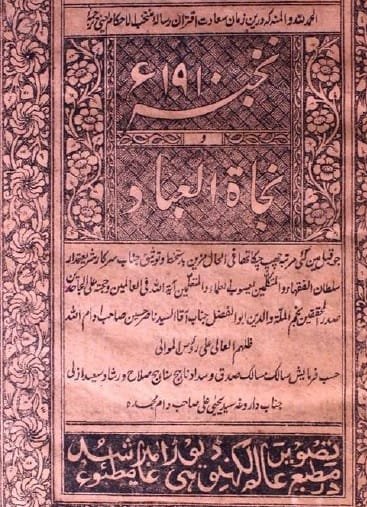 الحمد للہ والمنۃ کہ درین زمان سعادت اقتران رسالۂ منتخب الاحکام
نخبہ ۱۹۱۰ء
و
نجاۃ العباد
جو قبل میں کئی مرتبہ چھپ چکا تھا فی الحال مزین بدستخط و توثیق جناب سرکار شریعتمدار
سلطان الفقہاء والمتکلمین للعلماء والمتفقہین آیۃ اللہ فی العالمین وحجتہ علی الجاحدین
صدر المحققین نجم الملۃ والدین ابو الفضل جناب آقا السید صاحب ادام اللہ
ظلہم العالی علی رؤس الموالی
حسب فرمایش سالک مسالک صدق و سداد ناہج مناہج صلاح و رشاد سعید ازلی
جناب داروغہ سید علی صاحب دام مجدہ
تصویر
در مطبع